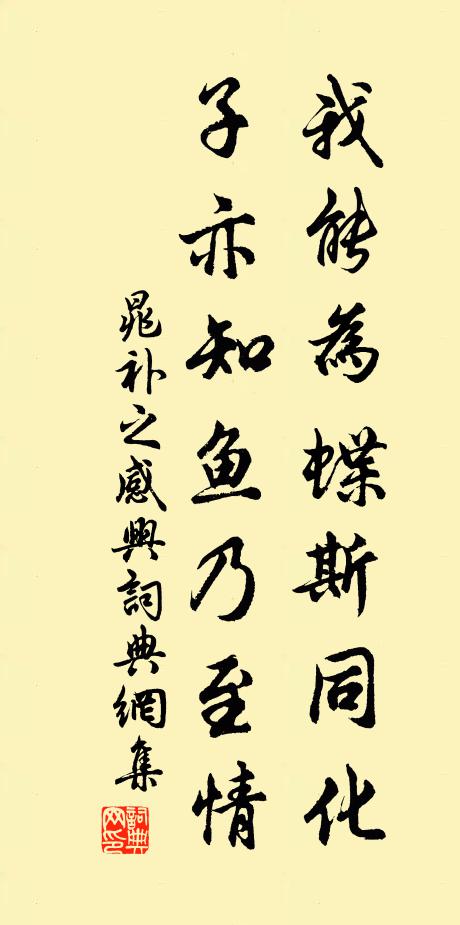 我能為蝶斯同化
子亦知鱼乃至情
晁补之感興詞典網集
詞典网印